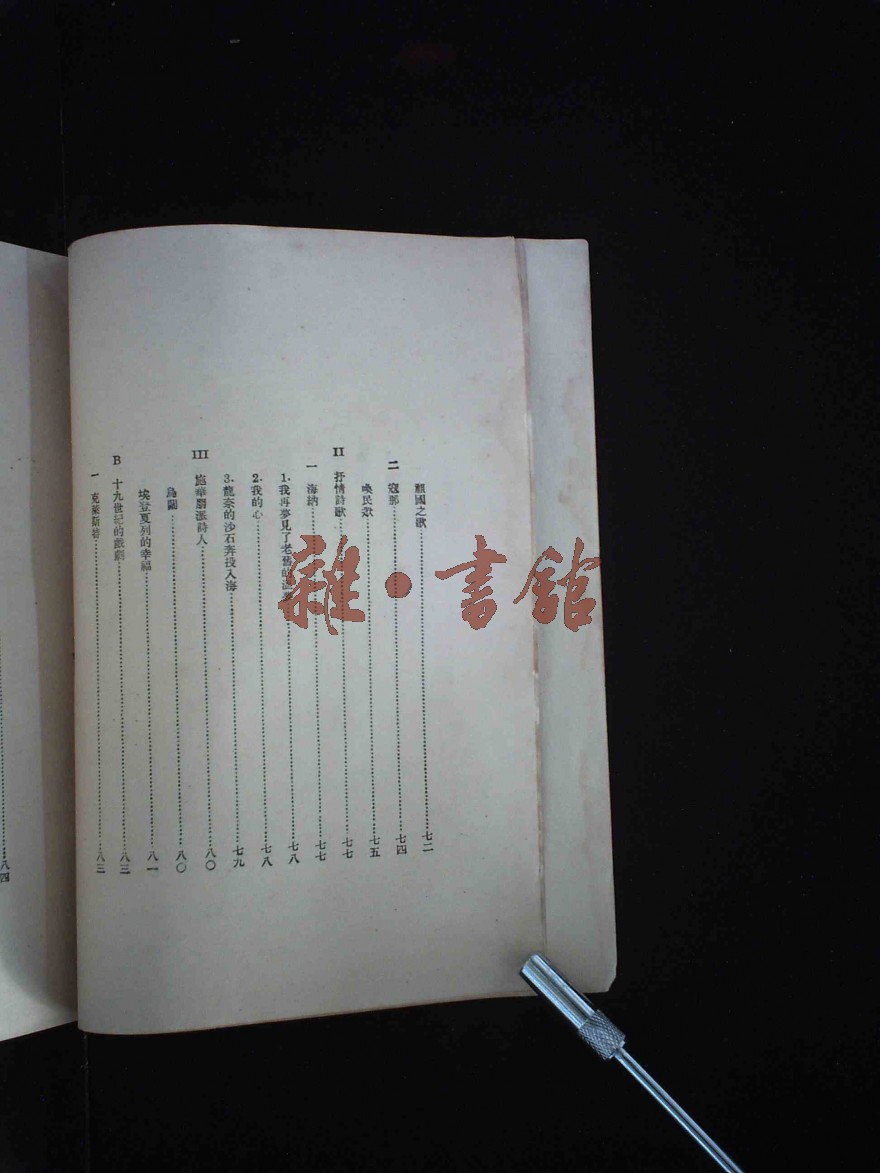 祖國之歌……七二
二 寇那……七四
喚民衆……七五
II 抒情詩歌……七七
一 海納……七七
1.我再夢見了老舊的……七八
2.我的心……七八
3.龍奈的沙石奔投入海……七九
III 施華朋派詩人……八〇
烏蘭……八〇
埃登夏列的幸福……八一
B 十九世紀的戲劇……八三
一 克萊斯特……八三
八四
雜·書館